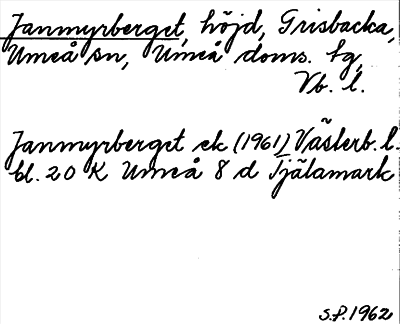 Janmyrberget, höjd, Grisbacka,
Umeå sn, Umeå doms. tg,
Vb. l.
Janmyrberget ek (1961) Västerb. l.
bl. 20 K Umeå 8 d Tjälamark
S.P. 1962